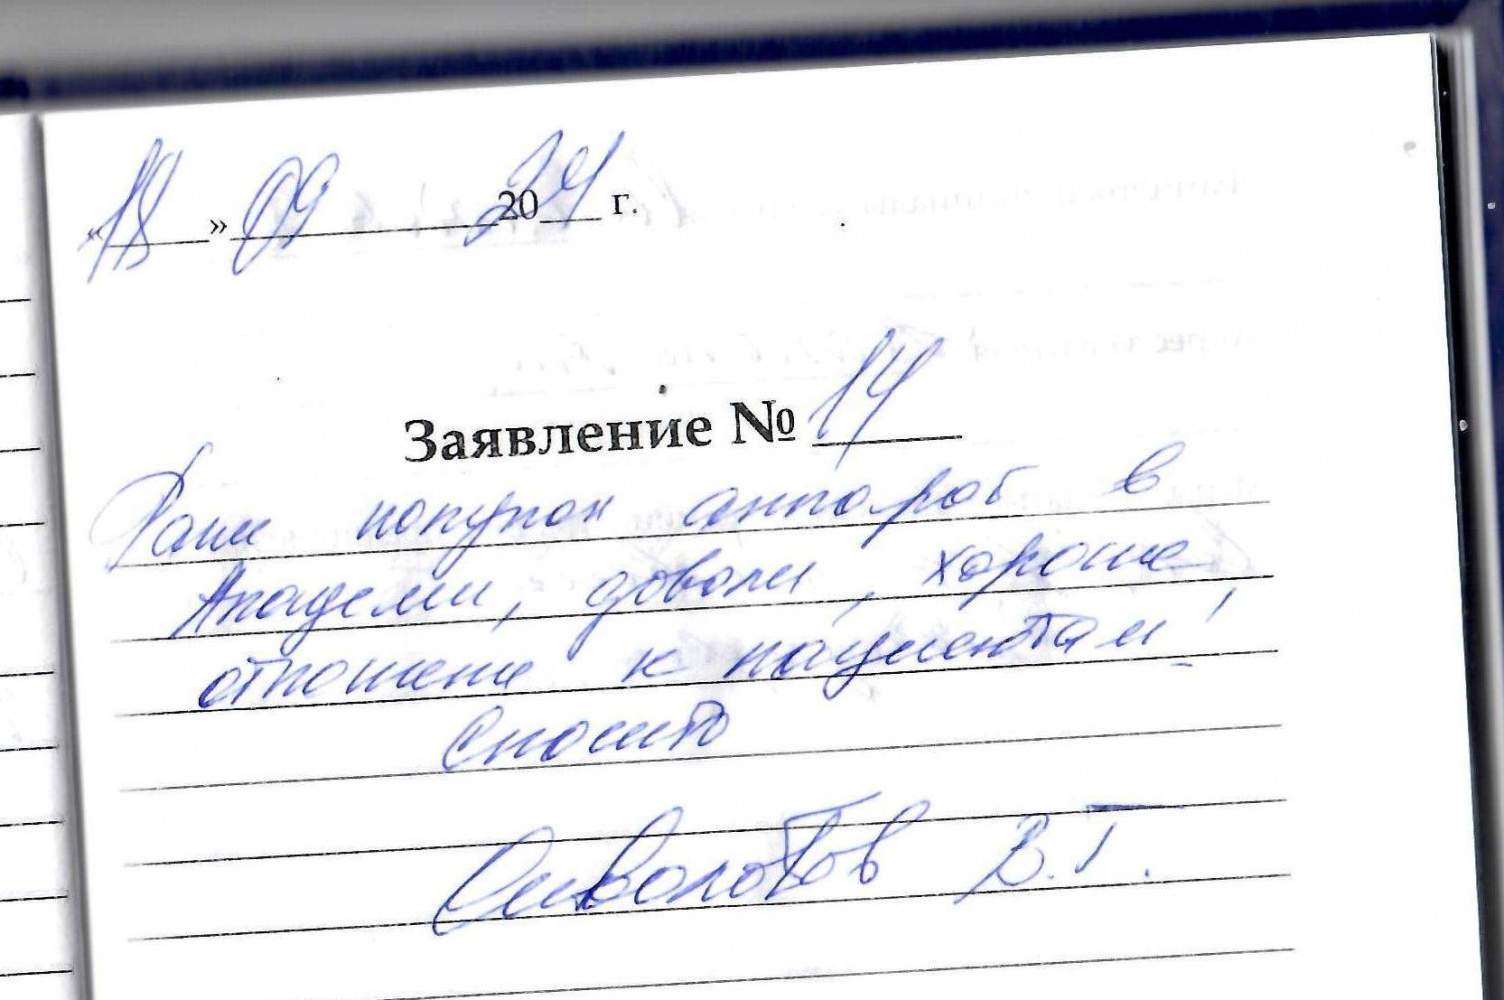 «18» 09 2024 г.
Заявление № 14
покупал аппарат в
Академии, доволен, хорошее
отношение к пациентам!
Спасибо
Сиволотов В.Г.